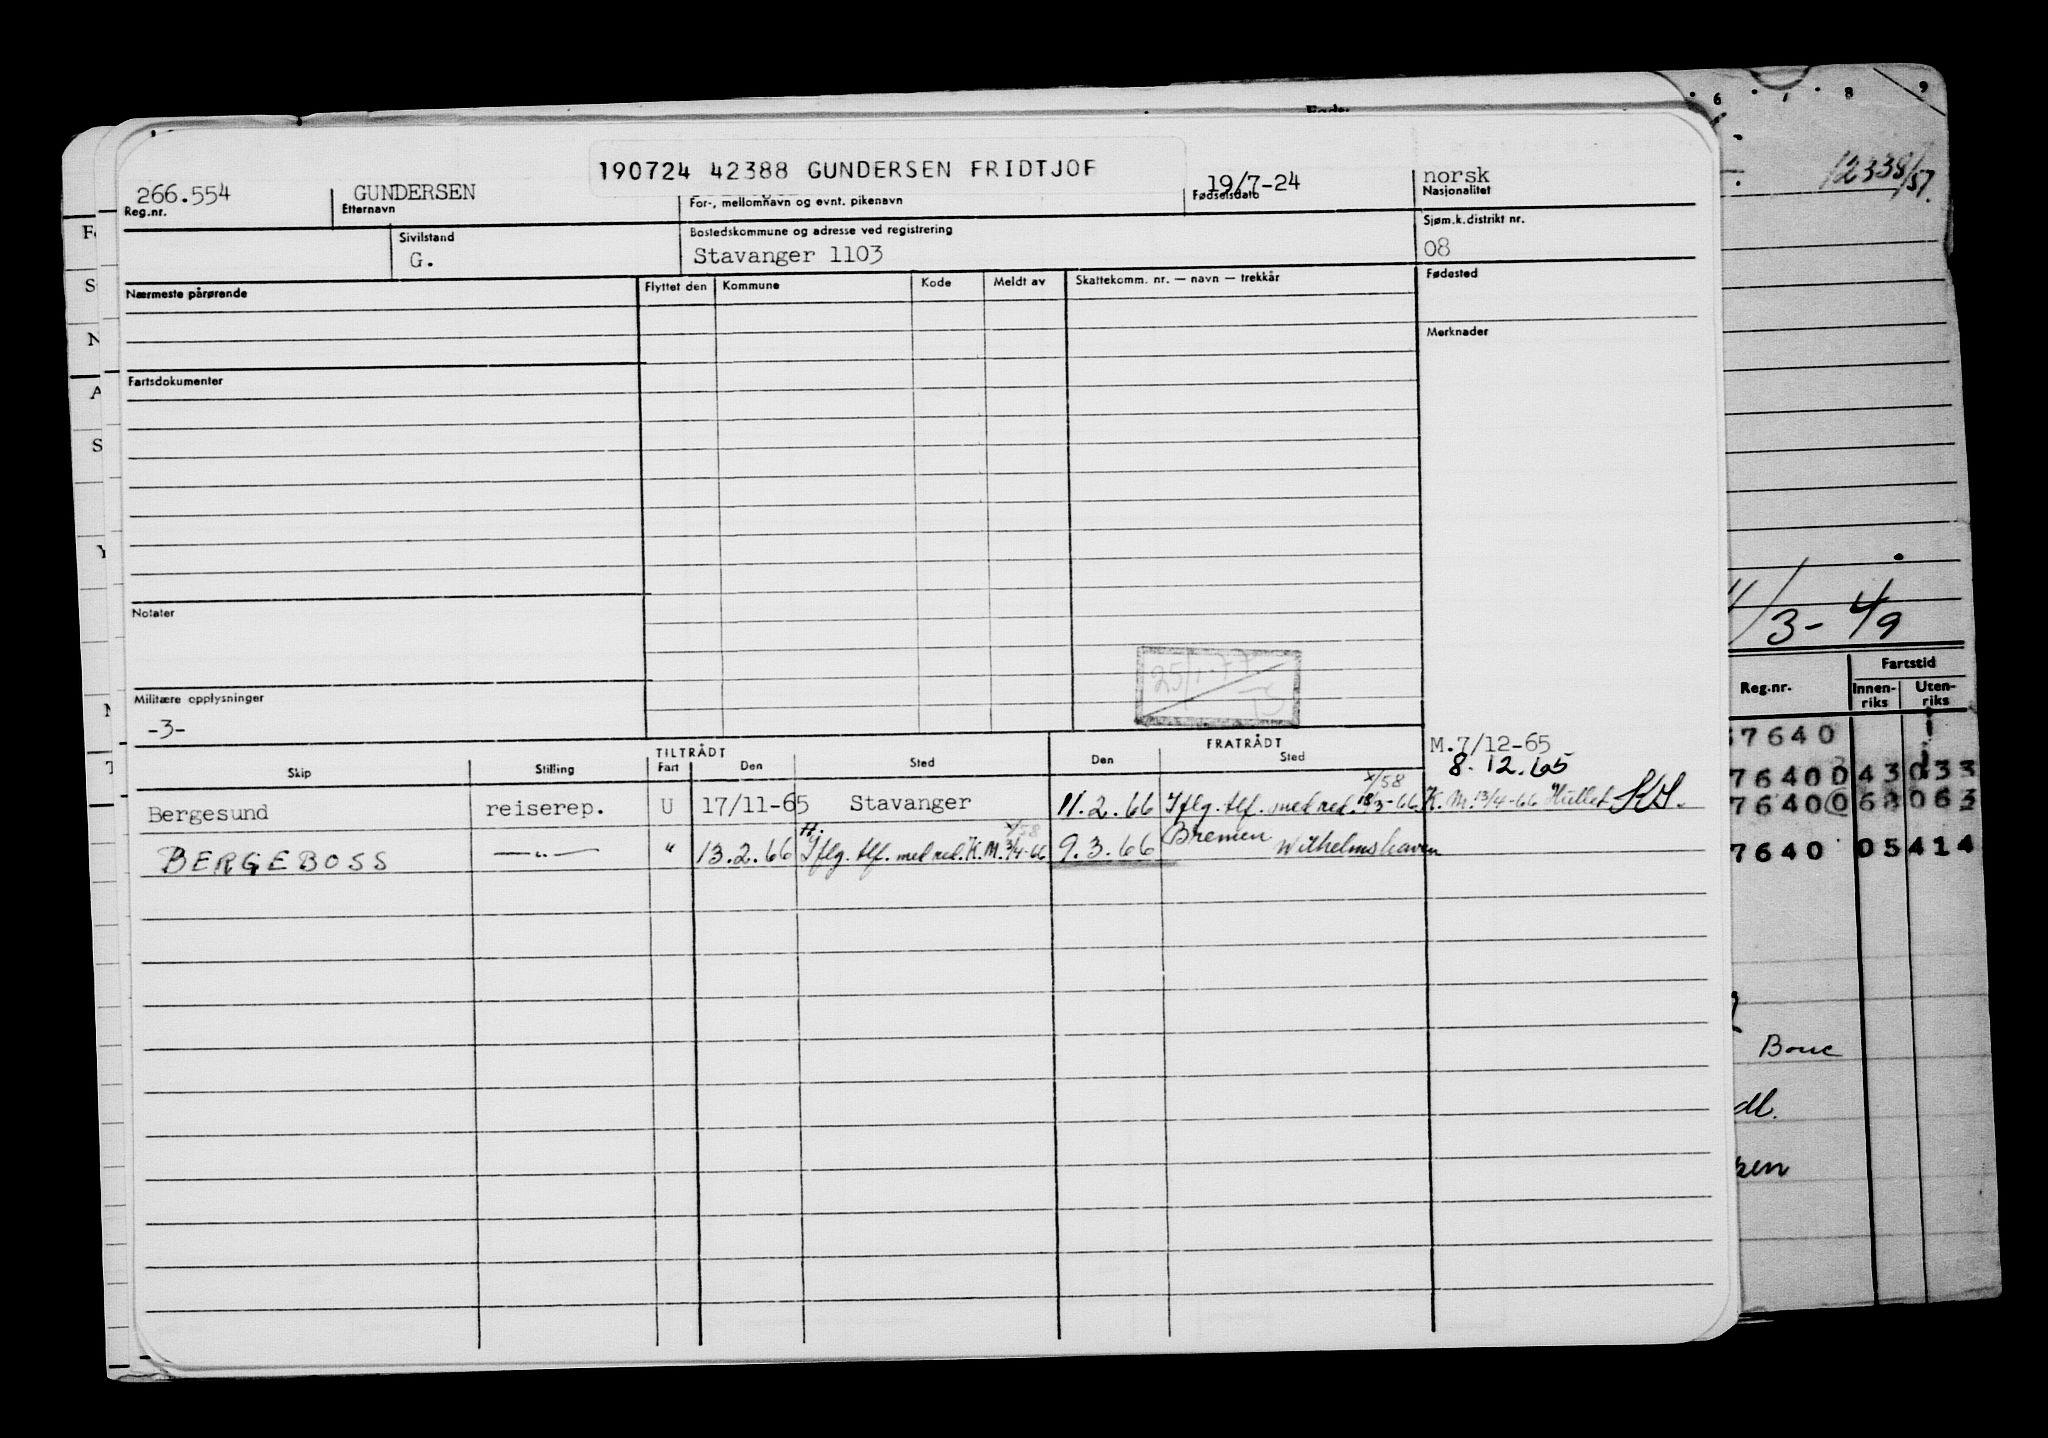 6 7 8 9
12338/57.
190724 42388 GUNDERSEN FRIDTJOF
266.554 GUNDERSEN 19/7-24 norsk
Reg.nr. Etternavn For-, mellomnavn og evnt. pikenavn Fødselsdato Nasjonalitet
Sivilstand Bostedskommune og adresse ved registrering Sjøm.k.distrikt nr.
G. Stavanger 1103 08
Nærmeste pårørende Flyttet den Kommune Kode Meldt av Skattekomm. nr. — navn — trekkår Fødested
Merknader
Fartsdokumenter
Notater
11/3 - 4/9
25/1.77
Militære opplysninger
-3-
Reg.nr. Fartstid
Innen-riks Uten-riks
TILTRÅDT FRATRÅDT M.7/12-65
Skip Stilling Fart Den Sted Den Sted 8.12.65
Bergesund reiserep. U 17/11-65 Stavanger 11.2.66 Iflg. tlf. med red. 18/3-66 K.M. 13/4-66 Hullet
Bremen
BERGEBOSS —"— " 13.2.66 Iflg. tlf. med red. K.M. 13/4-66 9.3.66 Wilhelmshaven
7640
76400 43 033
76400 68 063
7640 05 414
Bouc
dl.